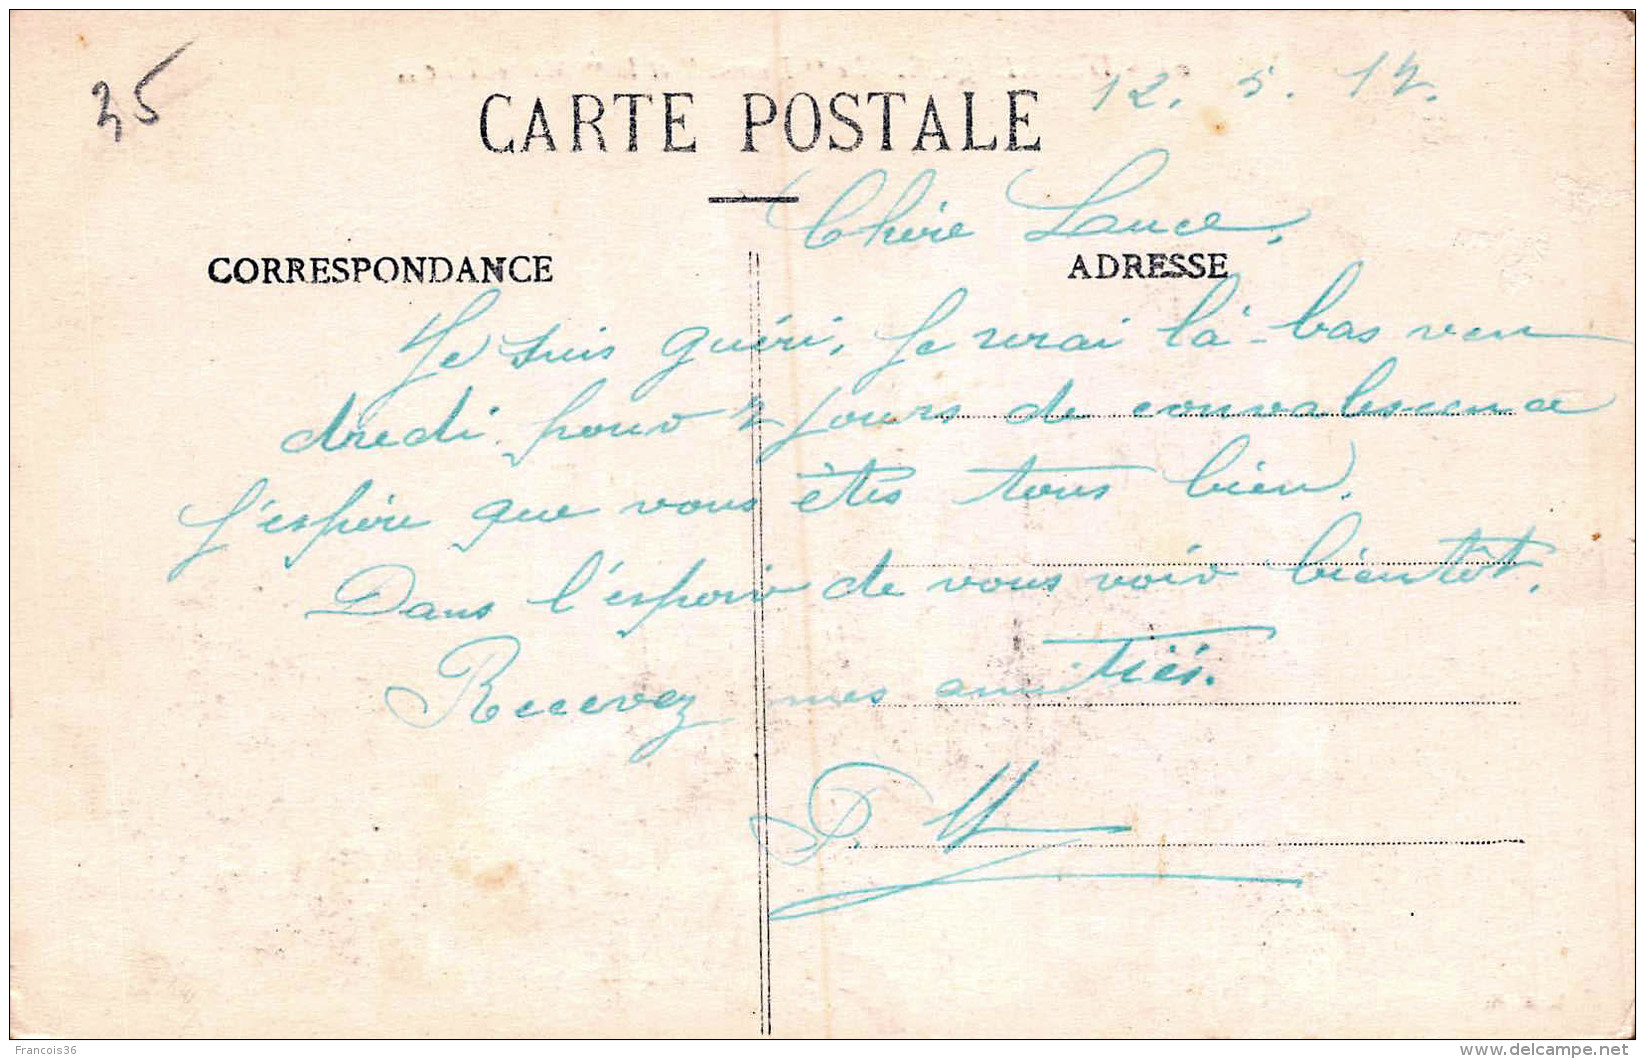 35
12. 5. 17.
CARTE POSTALE
Chère Lance,
CORRESPONDANCE
ADRESSE
Je suis guéri, je serai là-bas ven
dredi pour 2 jours de convalescence
J'espère que vous êtes tous bien.
Dans l'espoir de vous voir bientôt.
Recevez mes amitiés.
P. M
Francois36
www.delcampe.net